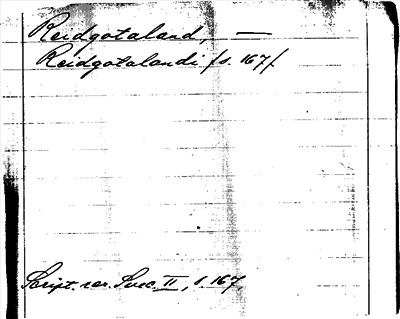 Reidgotaland, —
Reidgotalandi /s. 167/.
Script. rer. Svec. II, s. 167.